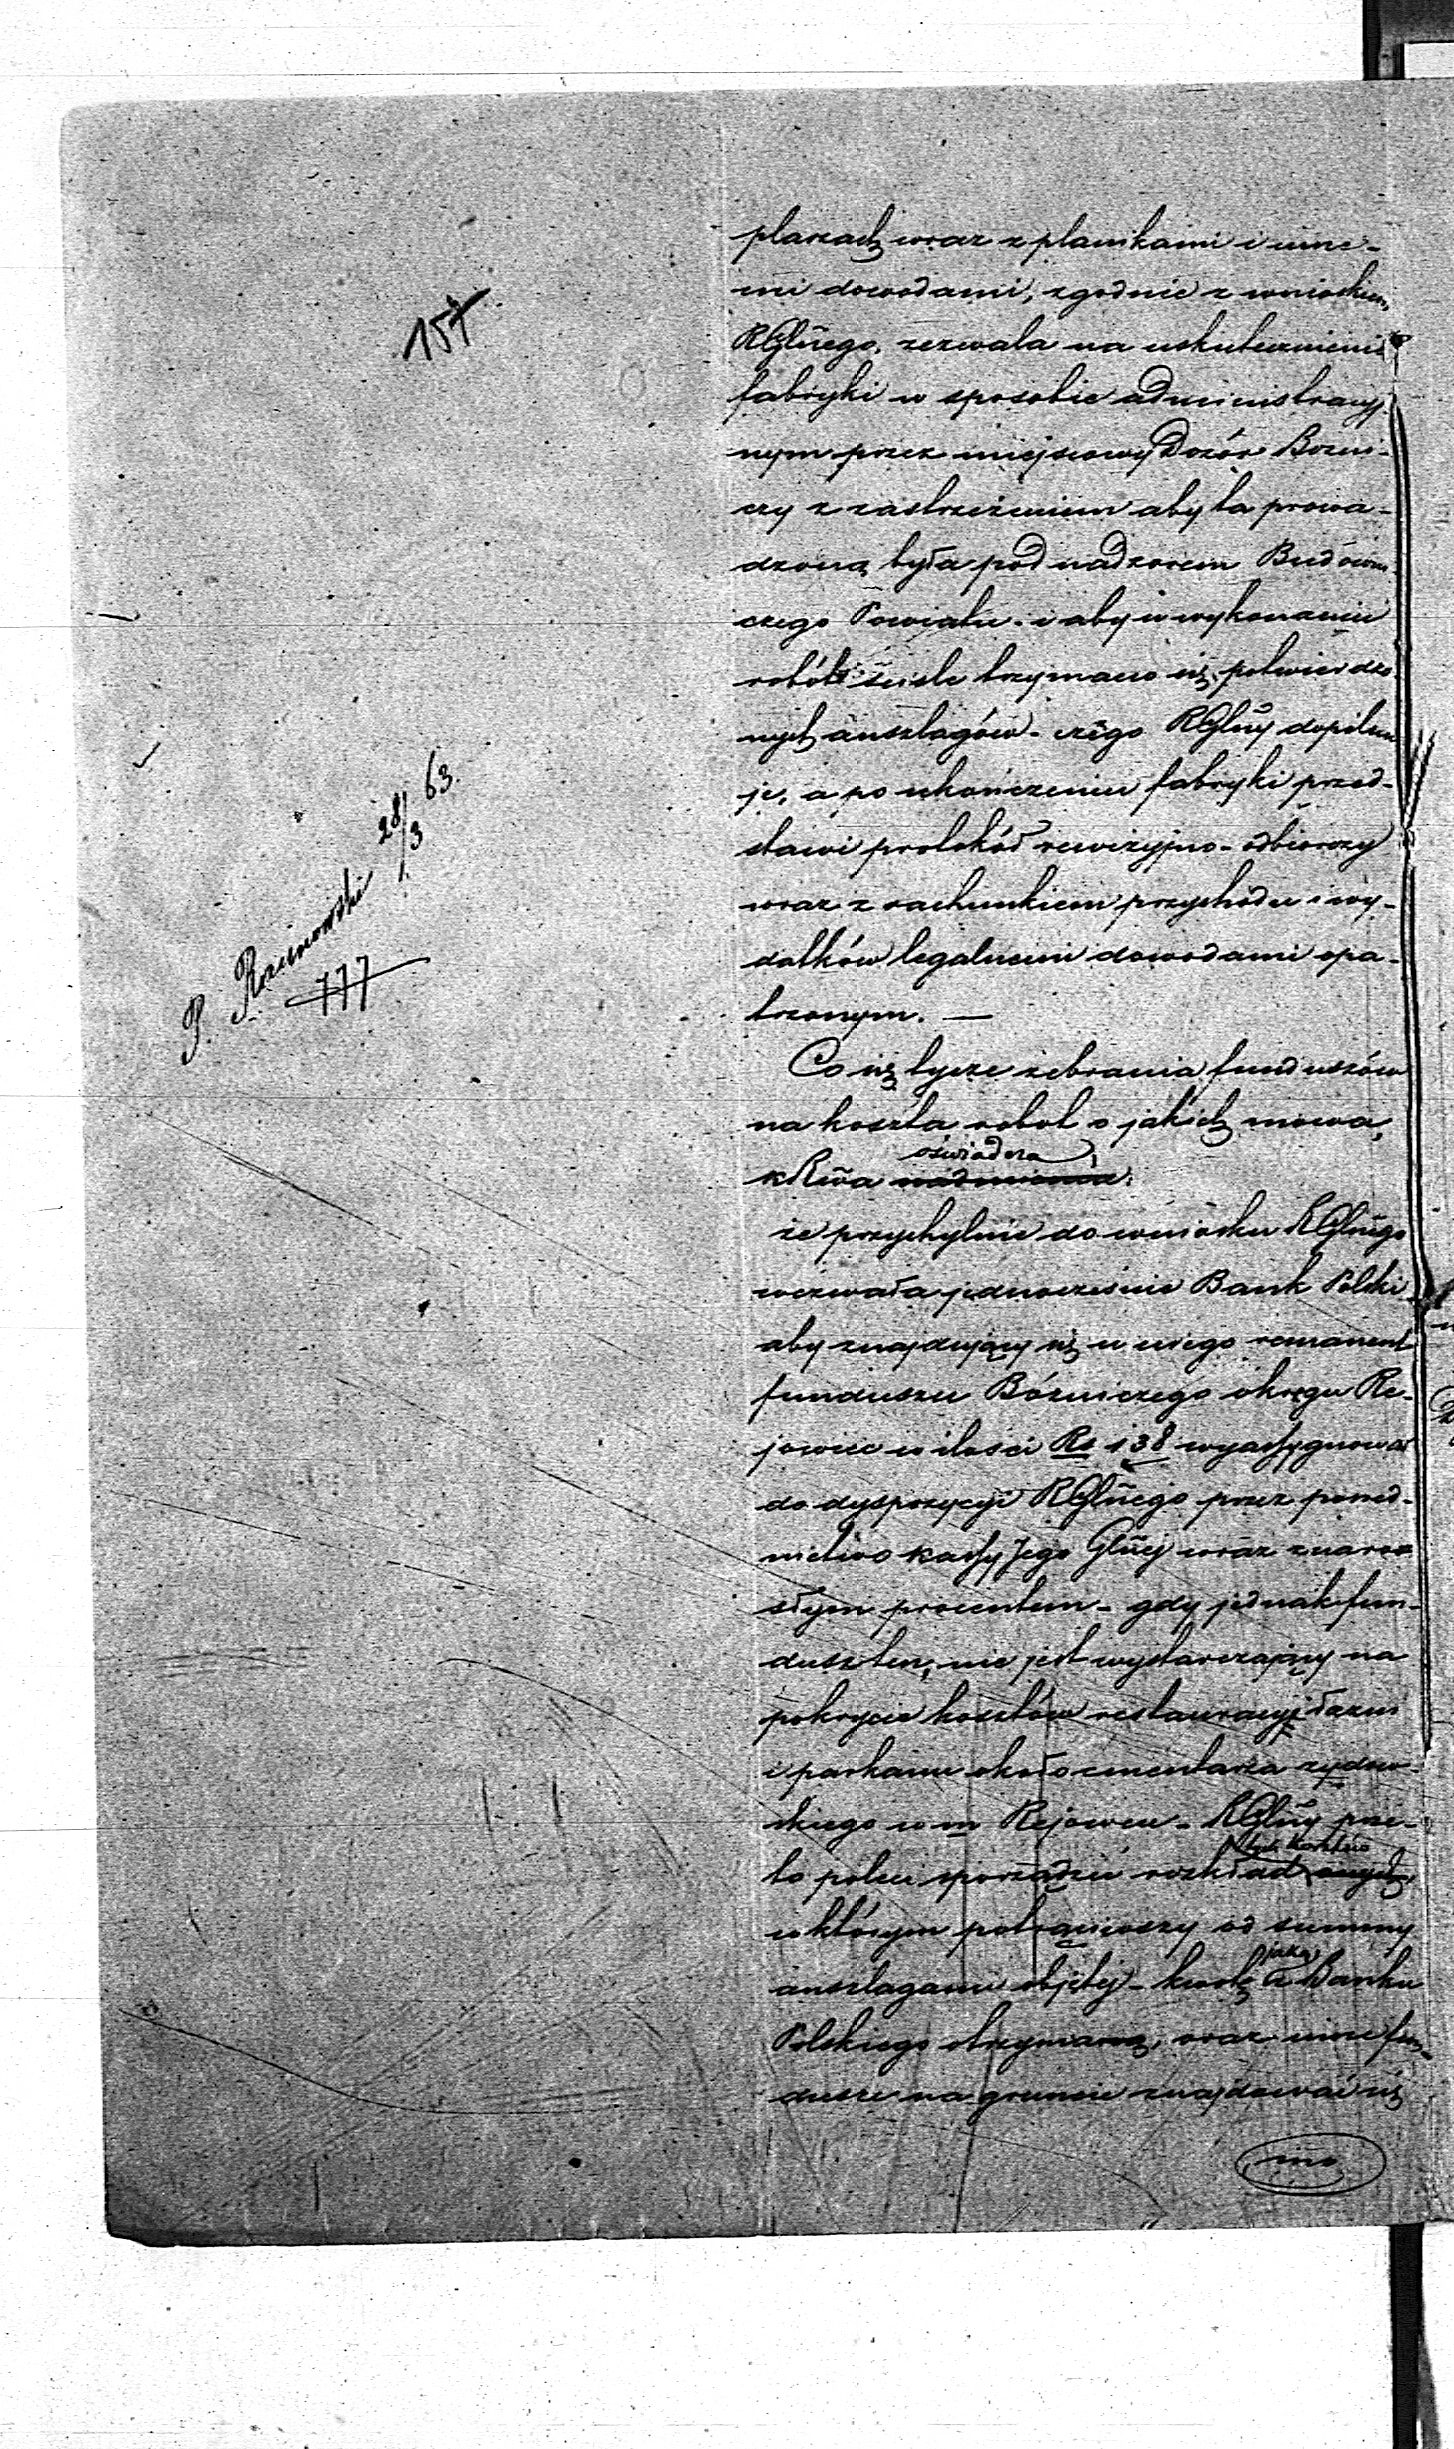 157
plarzach wraz z planikami i inne-
mi dowodami, zgodnie z wnioskiem
RGlnego, zezwala na uskutecznienie
fabryki w sposobie administracyj
nym przez miejscowy Dozór Bożni-
czy z zastrzeżeniem aby ta prowa-
dzoną była pod nadzorem Budowni
czego Powiatu i aby w wykonaniu
robót ściśle trzymano się potwierdzo
nych anszlagów - czego RGlny dopilnu
je, a po ukończeniu fabryki przed-
stawi protokół rewizyjno-odbiorczy
wraz z rachunkiem przychodu i wy-
datków legalnemi dowodami opa-
trzonym. —
P. Rozmowski 28/3 63.
777
Co się tycze zebrania funduszów
na koszta robot o jakich mowa,
oświadcza
KRwa nadmienia:
że przychylnie do wniosku RGlnego
wezwała jednocześnie Bank Polski
aby znajdujący się u niego remanent
funduszu Bóżniczego okręgu Re-
jowiec w ilości Rs 138 wyassygnował
do dyspozycyi RGlnego przez pośred-
nictwo kassy Jego Glnej wraz z naros
słym procentem - gdy jednak fun-
dusz ten, nie jest wystarczający na
pokrycie kosztów restauracyi łazni
i parkanu około cmentarza żydow-
skiego w m Rejowcu - RGlny prze-
tych kosztów
to poleci sporządzić rozkład
w którym potrąciwszy od summy
anszlagami objętej - kwotę jaką z Banku
Polskiego otrzyma, oraz inne fun-
dusze na gruncie znajdować się